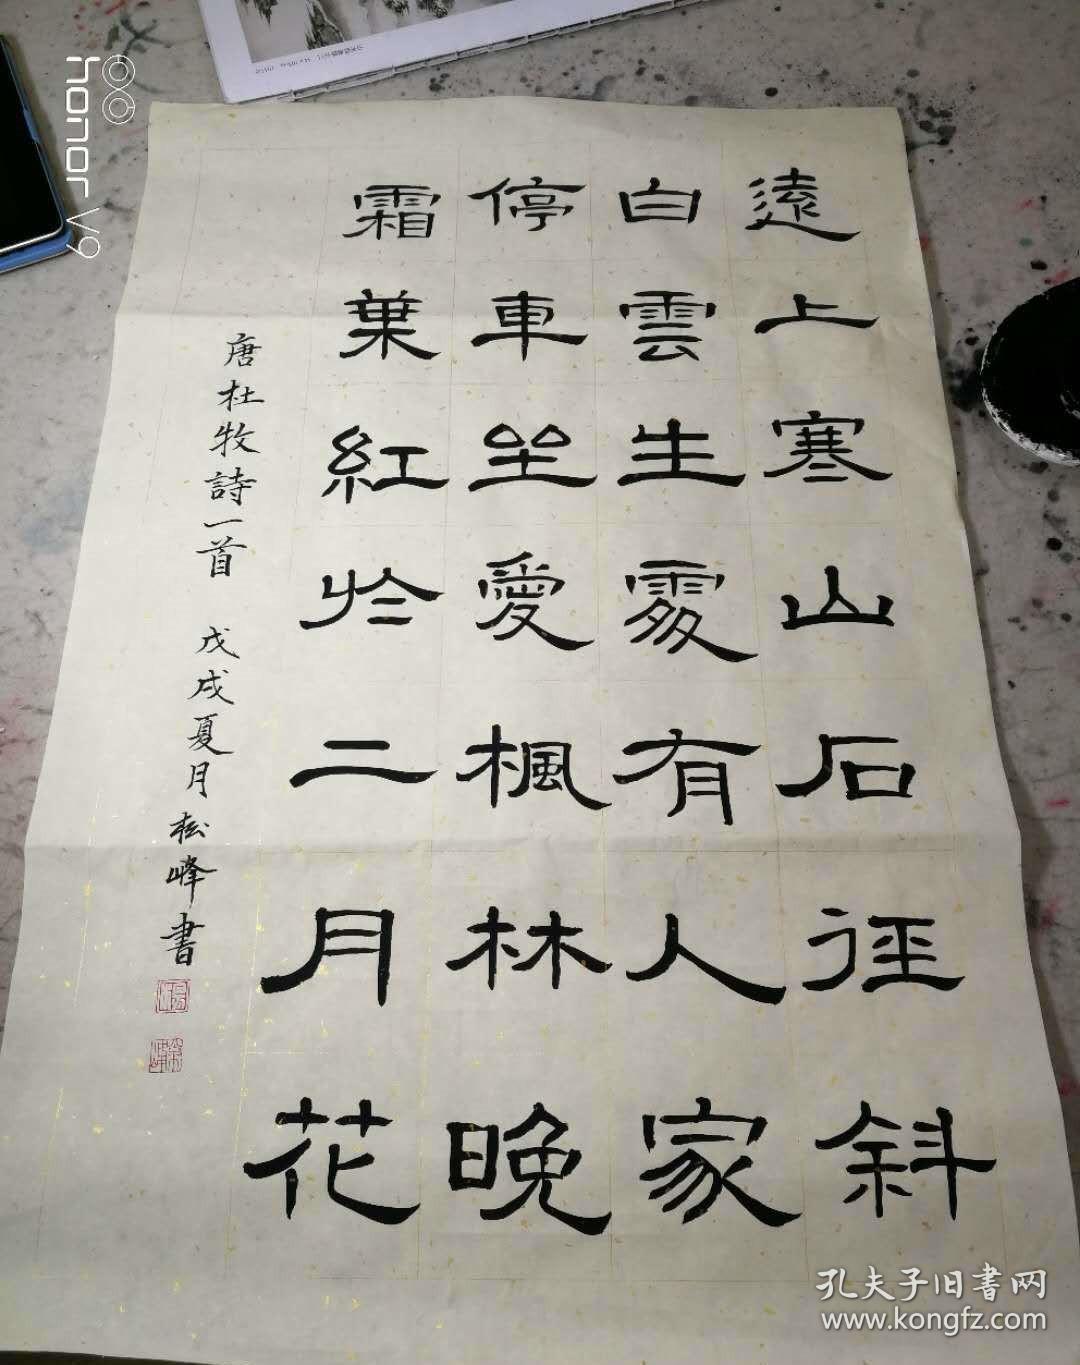 遠上寒山石徑斜
白雲生處有人家
停車坐愛楓林晚
霜葉紅於二月花
唐杜牧詩一首 戊戌夏月松峰書
honor V9
孔夫子旧書网
www.kongfz.com